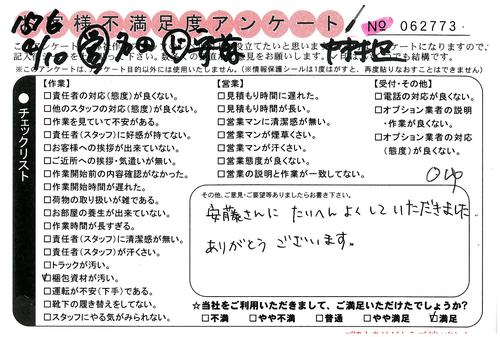 お客様不満足度アンケート
No 062773
※このアンケートは、アンケート目的以外には使用いたしません。（※情報保護シールは1度はがすと、再度貼りなおすことはできません）
チェックリスト
【作業】
□責任者の対応(態度)が良くない。
□他のスタッフの対応(態度)が良くない。
□作業を見ていて不安がある。
□責任者(スタッフ)に好感が持てない。
□お客様への挨拶が出来ていない。
□ご近所への挨拶・気遣いが無い。
□作業開始前の内容確認がなかった。
□作業開始時間が遅れた。
□荷物の取り扱いが雑である。
□お部屋の養生が出来ていない。
□作業時間が長すぎる。
□責任者(スタッフ)に清潔感が無い。
□責任者(スタッフ)が汗くさい。
□トラックが汚い。
☑梱包資材が汚い。
□運転が不安(下手)である。
□靴下の履き替えをしてない。
□スタッフにやる気がみられない。
【営業】
□見積もり時間に遅れた。
□見積もり時間が長い。
□営業マンに清潔感が無い。
□営業マンが煙草くさい。
□営業マンが汗くさい。
□営業態度が良くない。
□営業の説明と作業が一致してない。
【受付・その他】
□電話の対応が良くない。
□オプション業者の説明・作業が良くない。
□オプション業者の対応(態度)が良くない。
その他、ご意見・ご要望等ありましたらお書き下さい。
安藤さんに たいへん よくして いただきました
ありがとう ございます。
☆当社をご利用いただきまして、ご満足いただけたでしょうか？
□不満 □やや不満 □普通 □やや満足 ☑満足